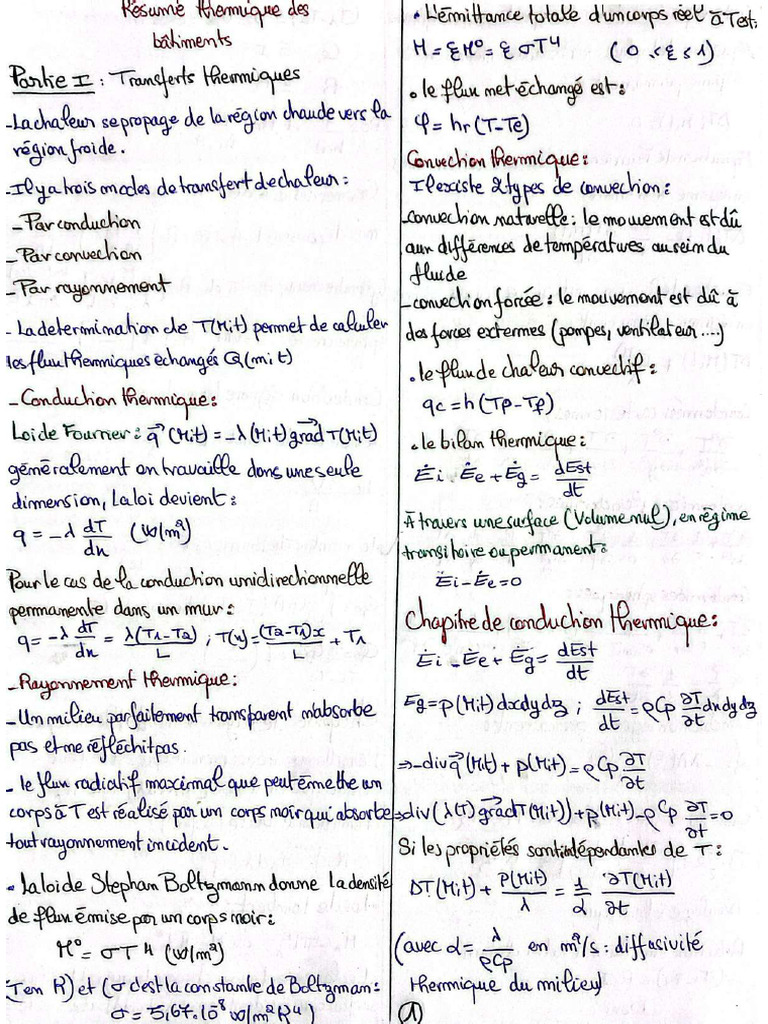 Résumé thermique des
bâtiments
Partie I : Transferts thermiques
- La chaleur se propage de la région chaude vers la
région froide.
- Il y a trois modes de transfert de chaleur :
- Par conduction
- Par convection
- Par rayonnement
- La determination de T(M,t) permet de calculer
les flux thermiques échangés Q(m,t)
- Conduction thermique :
Loi de Fourrier : q⃗ (M,t) = -λ(M,t) grad⃗ T(M,t)
généralement on travaille dans une seule
dimension, La loi devient :
q = -λ dT/dx (W/m²)
Pour le cas de la conduction unidirectionnelle
permanente dans un mur :
q = -λ dT/dx = λ(T1-T2)/L ; T(x) = (T2-T1)x/L + T1
- Rayonnement thermique :
- Un milieu parfaitement transparent n'absorbe
pas et ne réfléchit pas.
- le flux radiatif maximal que peut émettre un
corps à T est réalisé par un corps noir qui absorbe
tout rayonnement incident.
• La loi de Stephan Boltzmann donne la densité
de flux émise par un corps noir :
M° = σT4 (W/m²)
(T en K) et (σ c'est la constante de Boltzman :
σ = 5,67.10-8 W/m²K4)
• L'émittance totale d'un corps réel à T est :
M = εM° = εσT4 (0 ≤ ε ≤ 1)
• le flux net échangé est :
φ = hr (T-Te)
Convection thermique :
Il existe 2 types de convection :
- convection naturelle : le mouvement est dû
aux différences de températures au sein du
fluide
- convection forcée : le mouvement est dû à
des forces externes (pompes, ventilateur...)
• le flux de chaleur convectif :
qc = h(Tp-Tf)
• le bilan thermique :
Ėi - Ėe + Ėg = dEst/dt
À travers une surface (Volume nul), en régime
transitoire ou permanent :
Ėi - Ėe = 0
Chapitre de conduction thermique :
Ėi - Ėe + Ėg = dEst/dt
Eg = P(M,t) dxdydz ; dEst/dt = ρCp ∂T/∂t dxdydz
⇒ -div q⃗ (M,t) + P(M,t) = ρCp ∂T/∂t
⇒ div(λ(T) grad⃗ T(M,t)) + P(M,t) - ρCp ∂T/∂t = 0
Si les propriétés sont indépendantes de T :
ΔT(M,t) + P(M,t)/λ = 1/α ∂T(M,t)/∂t
(avec α = λ/ρCp en m²/s : diffusivité
thermique du milieu)
1